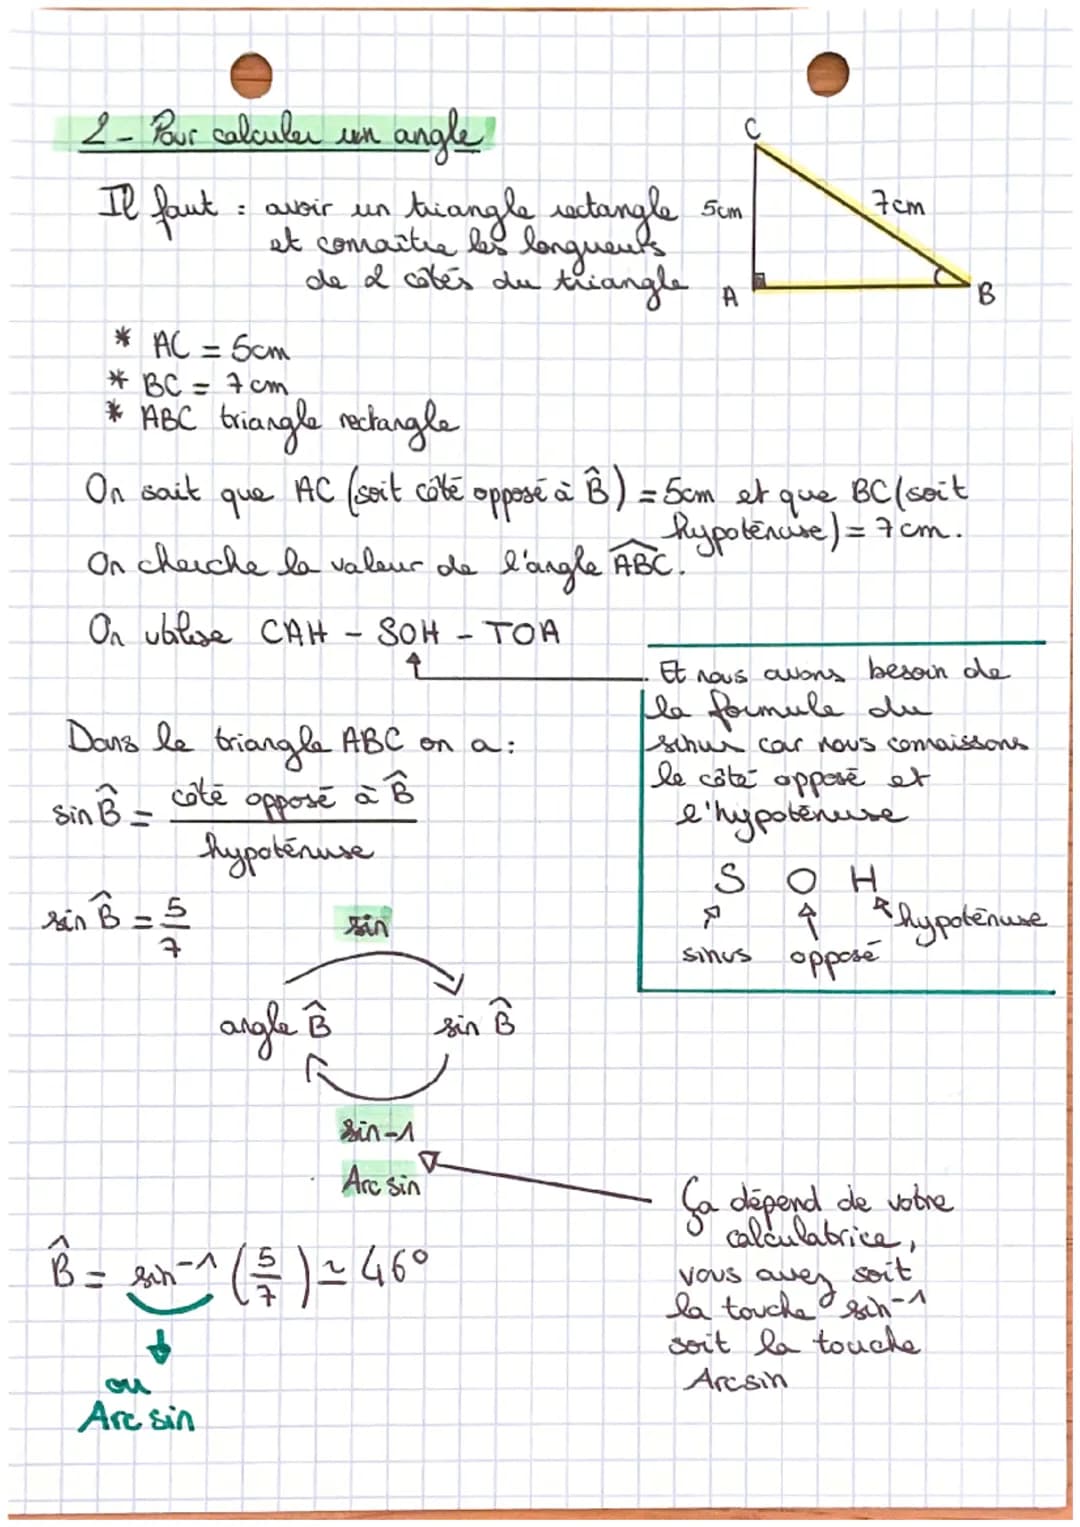 2 - Pour calculer un angle
C
Il faut : avoir un triangle rectangle
5cm
7cm
et connaître les longueurs
de 2 côtés du triangle
A
B
* AC = 5cm
* BC = 7cm
* ABC triangle rectangle
On sait que AC (soit côté opposé à B̂) = 5cm et que BC (soit
hypoténuse) = 7cm.
On cherche la valeur de l'angle ABC.
On utilise CAH - SOH - TOA
Et nous avons besoin de
la formule du
sinus car nous connaissons
le côté opposé et
l'hypoténuse
S O H
sinus
opposé
hypoténuse
Dans le triangle ABC on a :
sin B̂ = côté opposé à B̂
hypoténuse
sin B̂ = 5
7
sin
angle B̂
sin B̂
sin-1
Arc sin
Ça dépend de votre
calculatrice,
vous avez soit
la touche sin-1
soit la touche
Arcsin
B̂ = sin-1 (5/7) ≃ 46°
ou
Arc sin